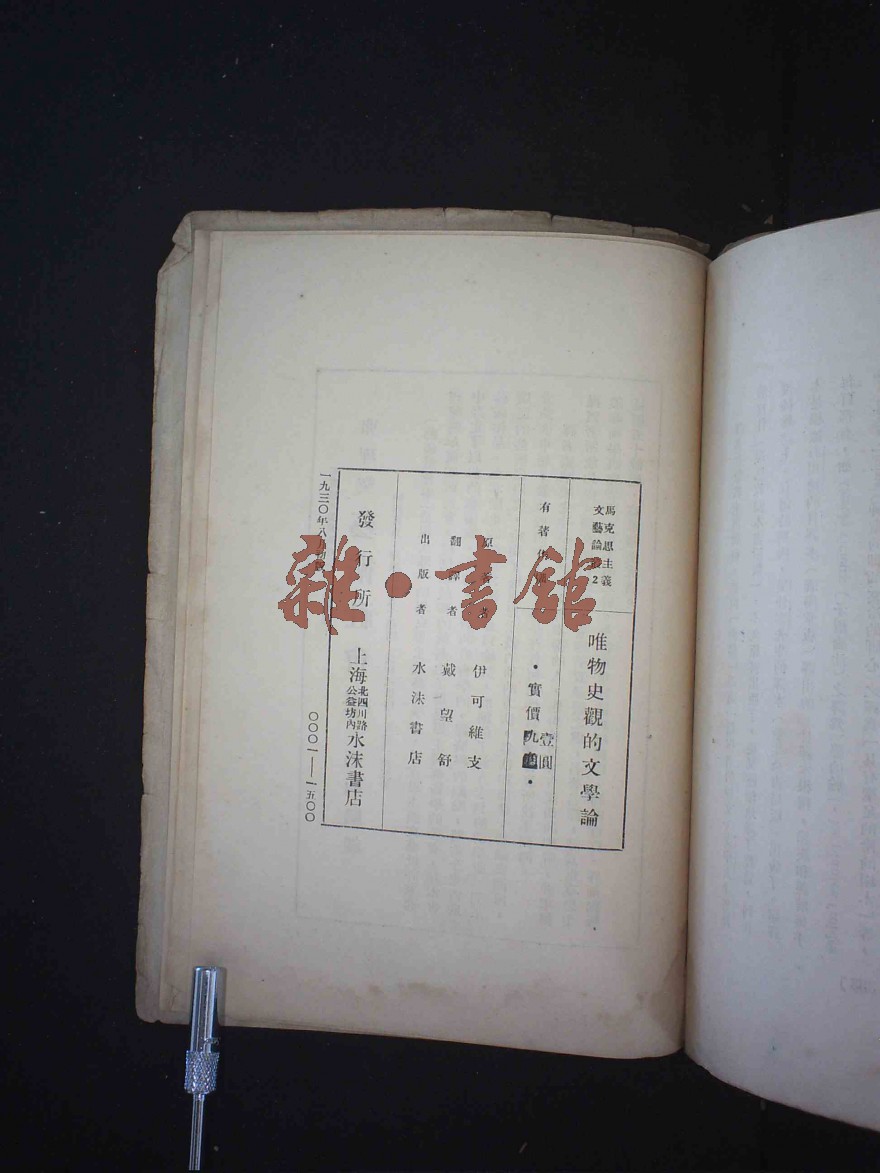 馬克思主義
文藝論叢2
唯物史觀的文學論
有著作權
·實價壹圓
九角·
原著者 伊可維支
翻譯者 戴望舒
出版者 水沫書店
發行所 上海北四川路
公益坊內水沫書店
一九三〇年八月初版
〇〇〇一—一五〇〇
雜·書館